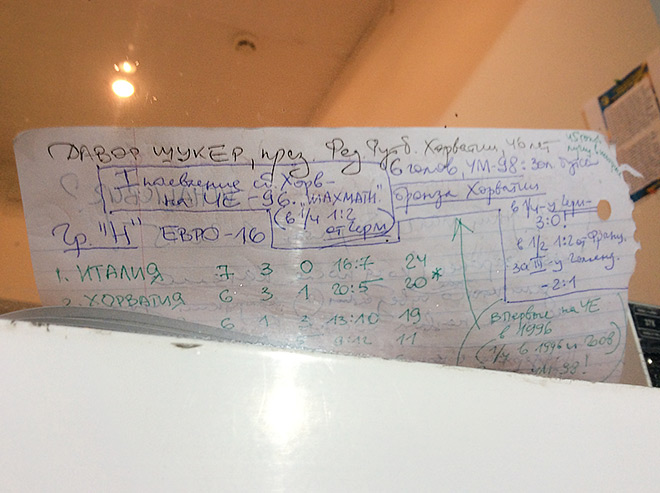 ДАВОР ШУКЕР, през. Фед. Футб. Хорватии, 46 лет
6 голов, ЧМ-98: зол. бутса
I появление сб. Хорв-
на ЧЕ-96: "ШАХМАТЫ"
(в 1/4 1:2
от Герм.)
бронза Хорватии
в 1/4-у Герм-
3:0!
в 1/2 1:2 от Франц.
за III-у Голланд.
-2:1
Гр. "H" ЕВРО-16
1. ИТАЛИЯ 7 3 0 16:7 24
2. ХОРВАТИЯ 6 3 1 20:5 20*
6 1 3 13:10 19
9:12 11
Впервые на ЧЕ
в 1996
(1/4 в 1996 и 2008)
ЧМ-98!